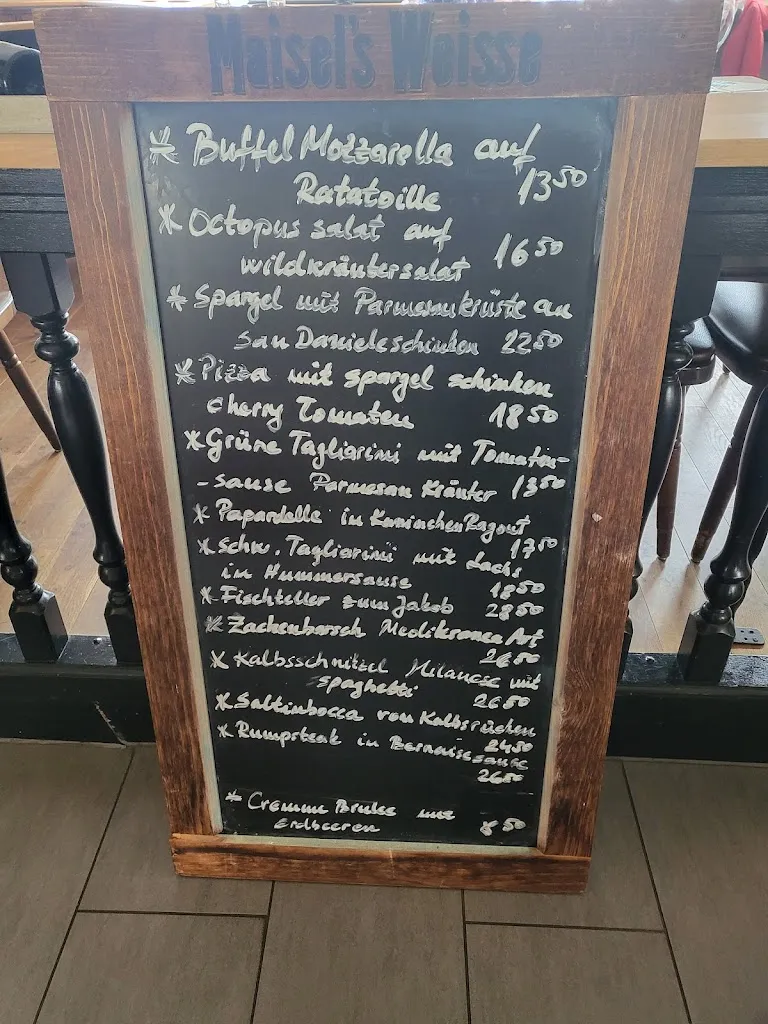 Maisel's Weisse
* Buffel Mozzarella auf
Ratatoille 13 50
* Octopus salat auf
wildkräutersalat 16 50
* Spargel mit Parmesankrüste an
San Danieleschinken 22 50
* Pizza mit spargel schinken
cherry Tomaten 18 50
* Grüne Tagliarini mit Tomaten-
- sause Parmesan Kräuter 13 50
* Papardelle in Kaninchen Ragout
17 50
* Schw. Tagliarini mit Lachs
in Hummersause 18 50
* Fischteller zum Jakob 28 50
* Zackenbarsch Mediterranea Art
26 50
* Kalbsschnitzel Milanese mit
spaghetti 26 50
* Saltimbocca von Kalbsrücken
24 50
* Rumpsteak in Bernaisesause
26 50
* Cremm Brulee mit
Erdbeeren 8 50